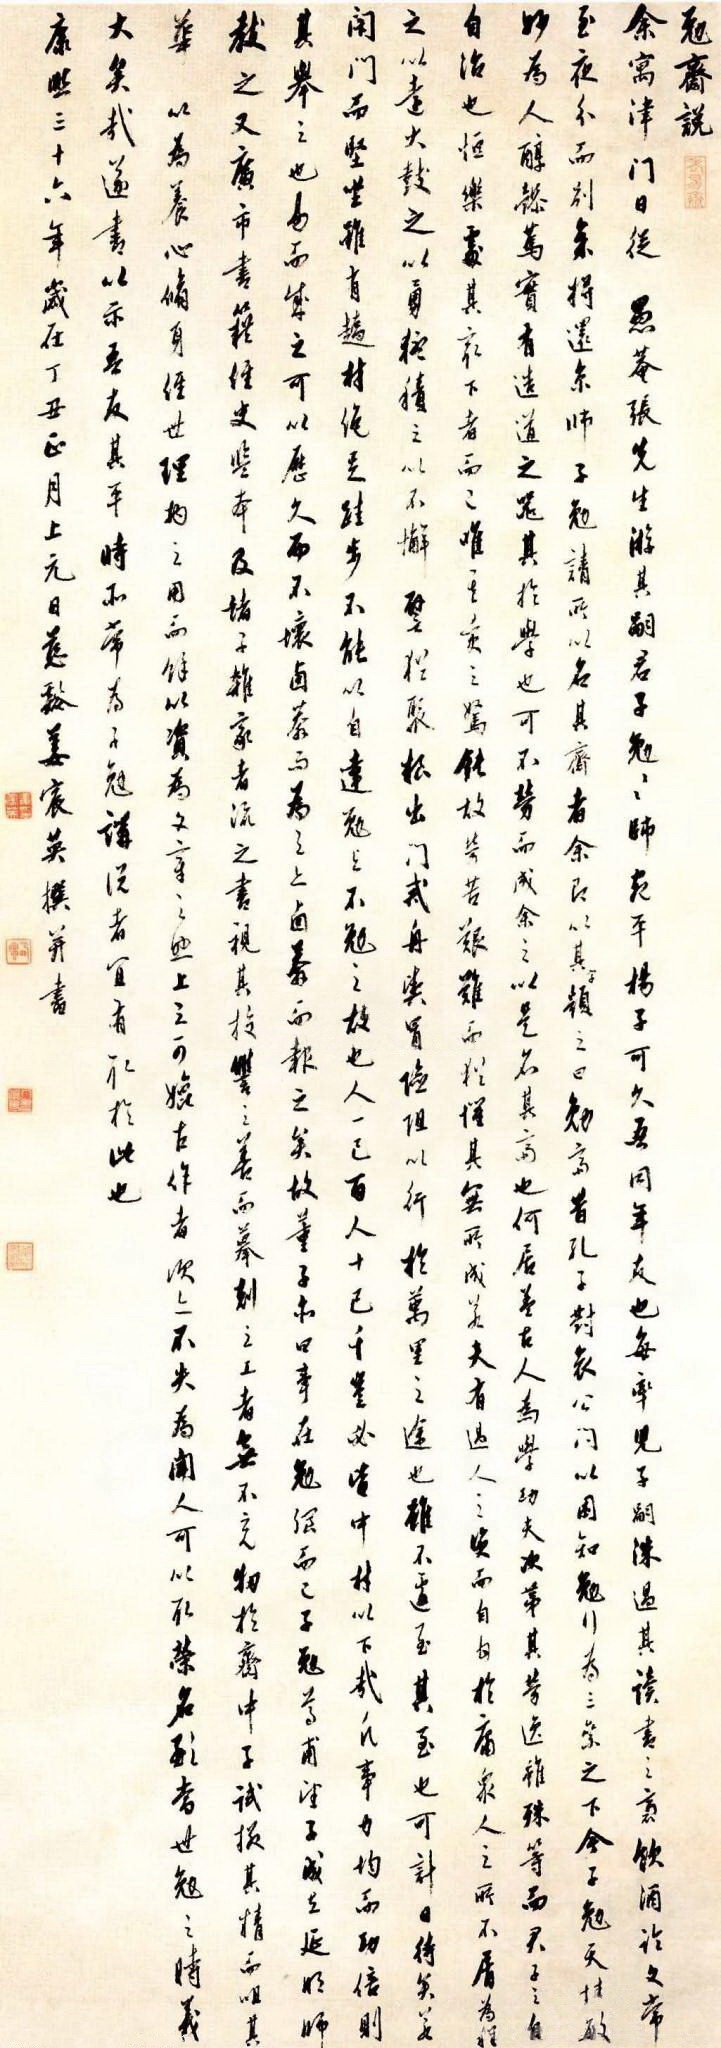 勉齋說
余寓津門日從 愚菴張先生游其嗣君子勉之師宛平楊子可久吾同年友也每率兒子嗣洙過其讀書之裏飲酒論文常
至夜分而別余將還京師子勉請所以名其齋者余即以其字顏之曰勉齋昔孔子對哀公問以困知勉行為三等之下今子勉天性敏
妙為人醇謹篤實有造道之器其於學也可不勞而成余之以是名其齋也何居蓋古人為學功夫次第其勞逸雖殊等而君子之自
自治也恒樂處其最下者而已唯其資之駑鈍故勞苦艱難而猶懼其無所成若夫有過人之資而自甘於庸眾人之所不屑為程
之以遠大鼓之以勇猛積之以不懈 譬猶聚糧出門戒舟楫冒險阻以行於萬里之途也雖不遽至其至也可計日待矣若
閉門而堅坐雖有趫材絕足跬步不能以自達勉與不勉之故也人一己百人十己千豈必皆中材以下哉凡事力均而功倍則
其舉之也易而成之可以歷久而不壞鹵莽而為之亦鹵莽而報之矣故董子亦曰事在勉強而已子勉尊甫望子成立延明師
教之又廣市書籍經史監本及諸子雜家者流之書視其校讐之善而摹刻之工者無不充牣於齋中子試擷其精而咀其
華 以為養心脩身經世理物之用而餘以資為文章之助上之可媲古作者次亦不失為聞人可以取榮名顯當世勉之時義
大矣哉遂書以示吾友其平時所常為子勉講說者宜有取於此也
康熙三十六年歲在丁丑正月上元日慈谿姜宸英撰并書